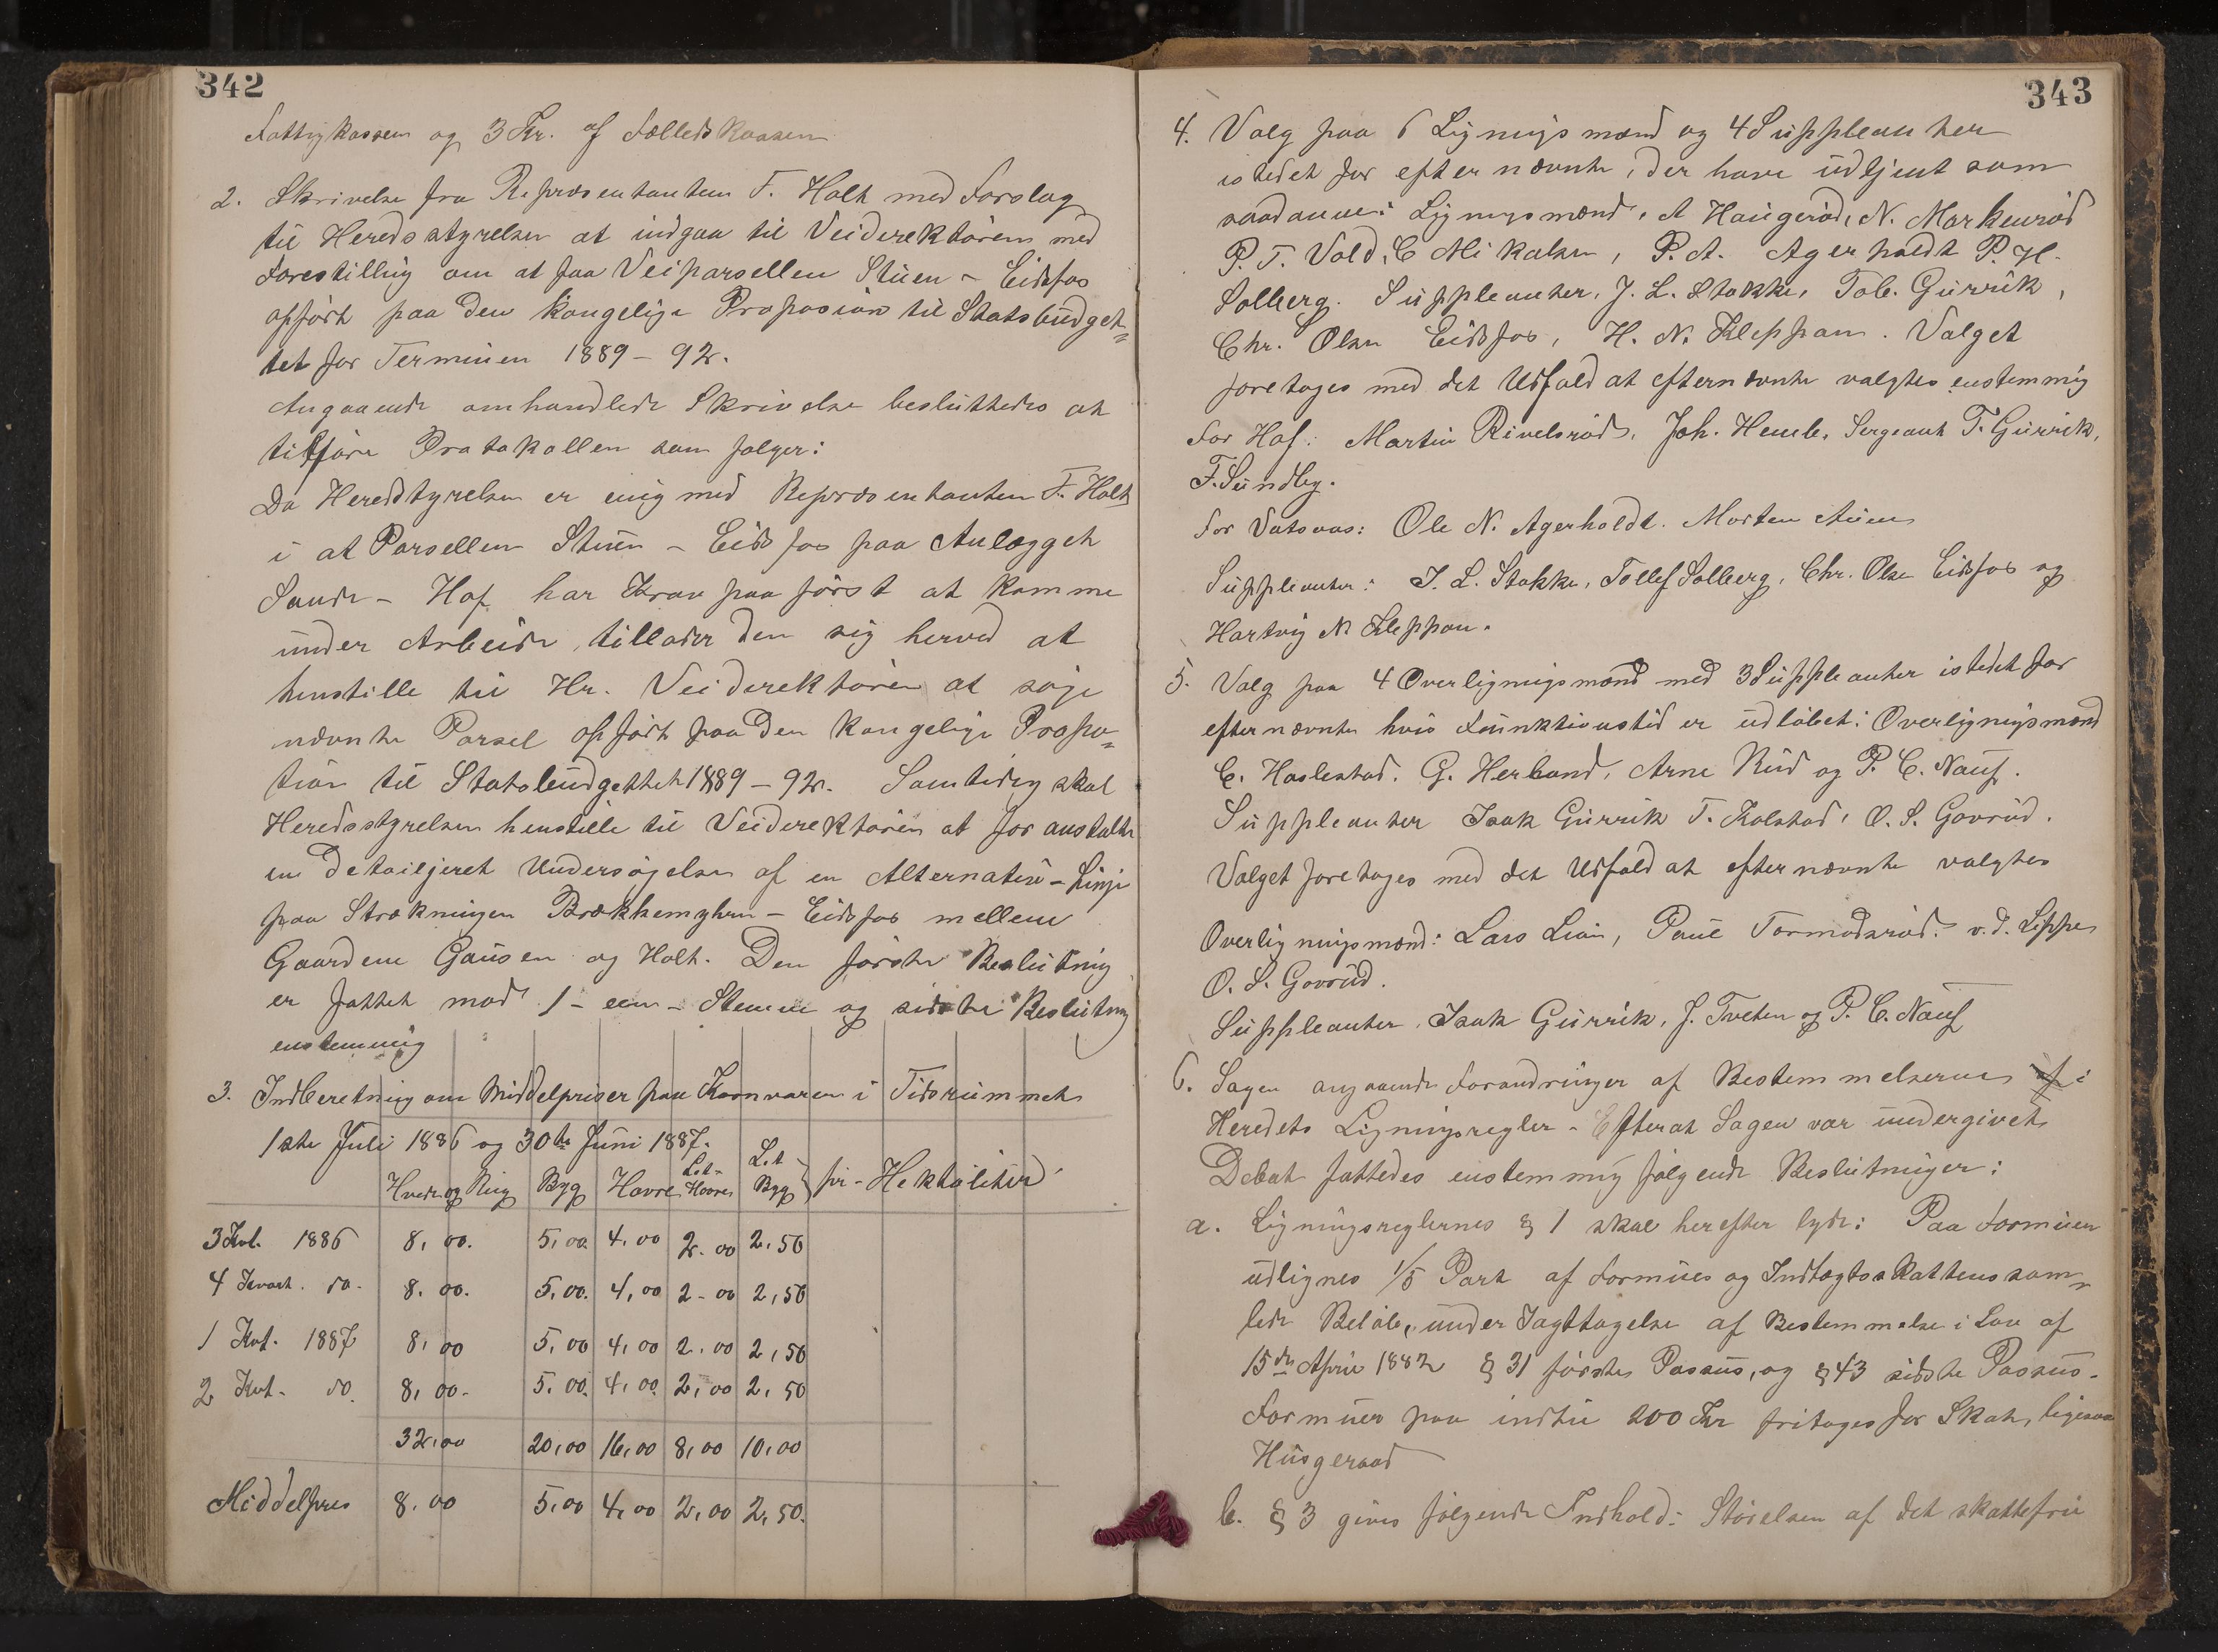 342
Fattigkassen og 3 Kr. af Fælledskassen
2. Skrivelse fra Repræsentanten F. Holt med Forslag
til Heredsstyrelsen at indgaa til Veidirektören med
Forestilling om at faa Veiparsellen Stüen - Eidsfos
opfört paa den kongelige Proposion til Statsbüdget=
tet for Terminen 1889 - 92.
Angaaende omhandlede Skrivelse beslüttedes at
tilföre Protokollen som fölger:
Da Heredstyrelsen er enig med Repræsentanten F. Holt
i at Parsellen Stüen - Eidsfos paa Anlægget
Sande - Hof har Krav paa först at komme
ünder Arbeide, tillader den sig herved at
henstille til Hr. Veiderektören at söge
nævnte Parsel opfört paa den kongelige Propo=
tion til Statsbüdgettet 1889 - 92. Samtidig skal
Heredsstyrelsen henstille til Veiderektören at foranstalte
en detailjeret Undersögelse af en Alternativ - Linje
paa Strækningen Brækkemyhren - Eidsfos mellem
Gaardene Gaüsen og Holt. Den förste Beslütning
er fattet mod 1 - een - Stemme og sidste Beslütning
enstemmig
3. Indberetning om Middelpriser paa Kornvarer i Tidsrümmet
1ste Jüli 1886 og 30te Jüni 1887.
Hvede og Rüg Byg Havre Let- Havre Let Byg pr - Hektoliter
3 Kvt. 1886 8,00. 5,00 4,00 2.00 2,50
4 Kvart. do. 8.00. 5,00. 4,00 2-00 2,50
1 Kvt. 1887 8,00 5,00 4,00 2,00 2,50
2 Kvt. do. 8,00. 5,00. 4,00. 2,00 2,50
32,00 20,00 16,00 8,00 10,00
Middelpris 8.00 5,00 4,00 2,00 2,50.
343
4. Valg paa 6 Ligningsmænd og 4 Süppleanter
istedet for efternævnte, der have üdtjent som
saadanne: Ligningsmænd, A Haügeröd, N. Markeröd
P. T. Vold, C Mikalsen, P. A. Agerholdt P. H.
Solberg. Süppleanter, J. L. Stokke, Tob. Gürrik,
Chr. Olsen Eidsfos, H. N. Kleppan. Valget
foretoges med det Udfald at efternævnte valgtes enstemmig
for Hof: Martin Rivelsröd, Joh. Hemb. Sergeant T. Gürrik,
F. Sündby.
for Vatsaas: Ole N. Agerholdt. Morten Aüen
Süppleanter: J. L. Stokke, Tollef Solberg, Chr. Olsen Eidsfos og
Hartvig N Kleppan.
5. Valg paa 4 Overligningsmænd med 3 Süppleanter istedet for
efternævnte hvis Fünktionstid er üdlöbet: Overligningsmænd
C. Haslestad. G. Herland, Arne Rüd og P. C. Naüf.
Süppleanter Isak Gürrik T. Kolstad, O. S. Govrüd.
Valget foretoges med det Udfald at efternævnte valgtes
Overligningsmænd: Lars Lian, Paül Tormodsröd. v. d. Lippe
O. S. Govrüd.
Süppleanter. Isak Gürrik, J. Tveten og P. C. Naüf
6. Sagen angaaende Forandringer af Bestemmelserne af i
Heredets Ligningsregler - Efterat Sagen var ündergivet
Debat fattedes enstemmig fölgende Beslütninger:
a. Ligningsreglernes § 1 skal herefter lyde: Paa Formüen
üdlignes 1/5 Part af Formües og Indtægtsskattens sam=
lede Belöb, ünder Iagttagelse af Bestemmelse i Lov af
15de April 1882 § 31 förste Passüs, og § 43 sidste Passüs.
Formüer paa indtil 200 Kr fritages for Skat, ligesaa
Hüsgeraad
b. § 3 gives fölgende Indhold: Störelsen af det skattefrie